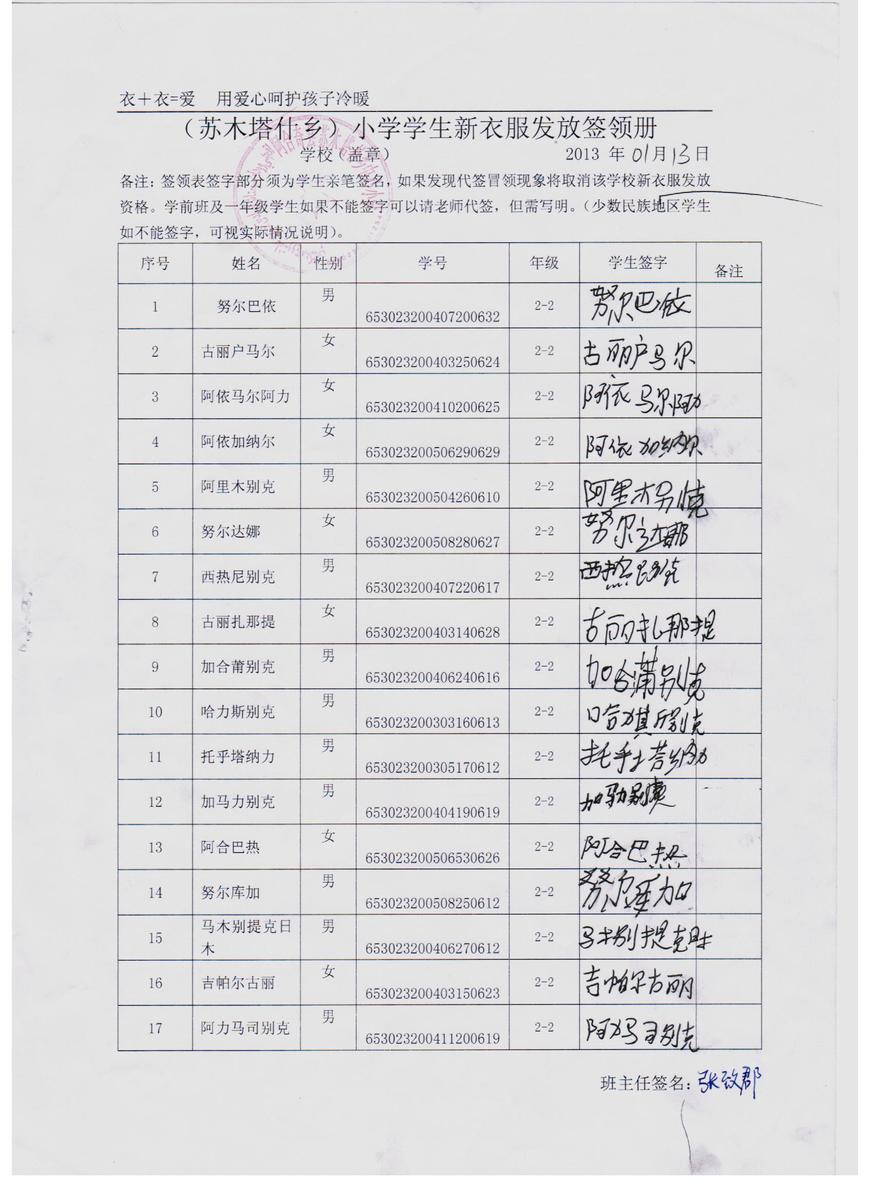 衣＋衣=爱 用爱心呵护孩子冷暖
（苏木塔什乡）小学学生新衣服发放签领册
学校（盖章） 2013 年 01月 13日
备注：签领表签字部分须为学生亲笔签名，如果发现代签冒领现象将取消该学校新衣服发放
资格。学前班及一年级学生如果不能签字可以请老师代签，但需写明。（少数民族地区学生
如不能签字，可视实际情况说明）。
序号 姓名 性别 学号 年级 学生签字 备注
1 努尔巴依 男 653023200407200632 2-2 努尔巴依
2 古丽户马尔 女 653023200403250624 2-2 古丽户马尔
3 阿依马尔阿力 女 653023200410200625 2-2 阿依马尔阿力
4 阿依加纳尔 女 653023200506290629 2-2 阿依加纳尔
5 阿里木别克 男 653023200504260610 2-2 阿里木别克
6 努尔达娜 女 653023200508280627 2-2 努尔达那
7 西热尼别克 男 653023200407220617 2-2 西热尼别克
8 古丽扎那提 女 653023200403140628 2-2 古丽扎那提
9 加合莆别克 男 653023200406240616 2-2 加合莆别克
10 哈力斯别克 男 653023200303160613 2-2 哈力斯别克
11 托乎塔纳力 男 653023200305170612 2-2 托乎塔纳力
12 加马力别克 男 653023200404190619 2-2
13 阿合巴热 女 653023200506530626 2-2 阿合巴热
14 努尔库加 男 653023200508250612 2-2 努尔库加
15 马木别提克日木 男 653023200406270612 2-2
16 吉帕尔古丽 女 653023200403150623 2-2 吉帕尔古丽
17 阿力马司别克 男 653023200411200619 2-2 阿力马司别克
班主任签名：张致郡